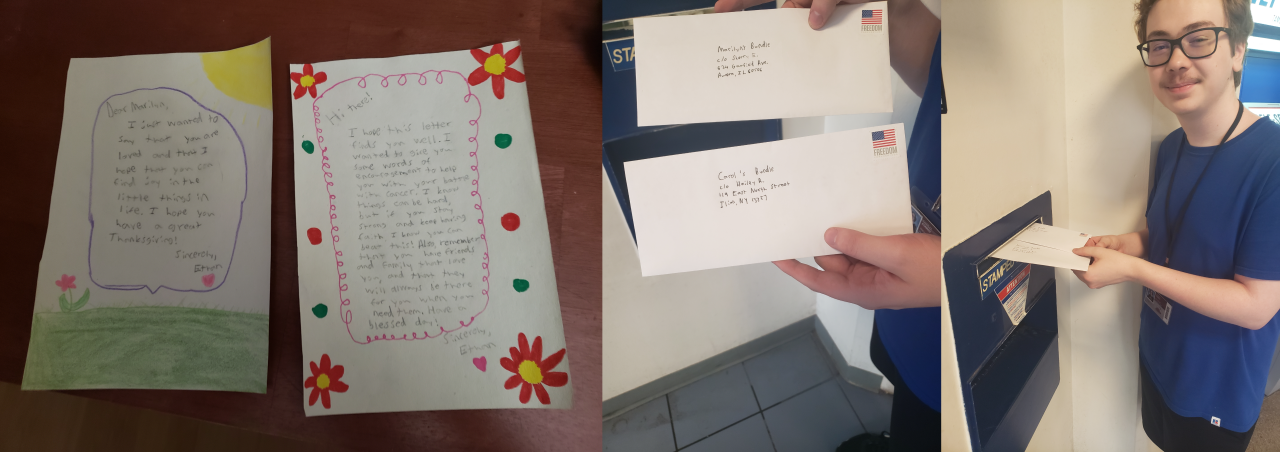 Dear Marilyn,
I just wanted to
say that you are
loved and that I
hope that you can
find joy in the
little things in
life. I hope you
have a great
Thanksgiving!
Sincerely,
Ethan
Hi there!
I hope this letter
finds you well. I
wanted to give you
some words of
encouragement to help
you with your battle
with cancer. I know
things can be hard,
but if you stay
strong and keep having
faith I know you can
beat this! Also, remember
that you have friends
and family that love
you, and that they
will always be there
for you when you
need them. Have a
blessed day!
Sincerely,
Ethan
STAM
FREEDOM
Marilyn's Bundle
c/o Susan S.
Aurora, IL 60506
FREEDOM
Carol's Bundle
c/o Hailey R.
119 East North Street
Ilion, NY, 13357
STAMPED